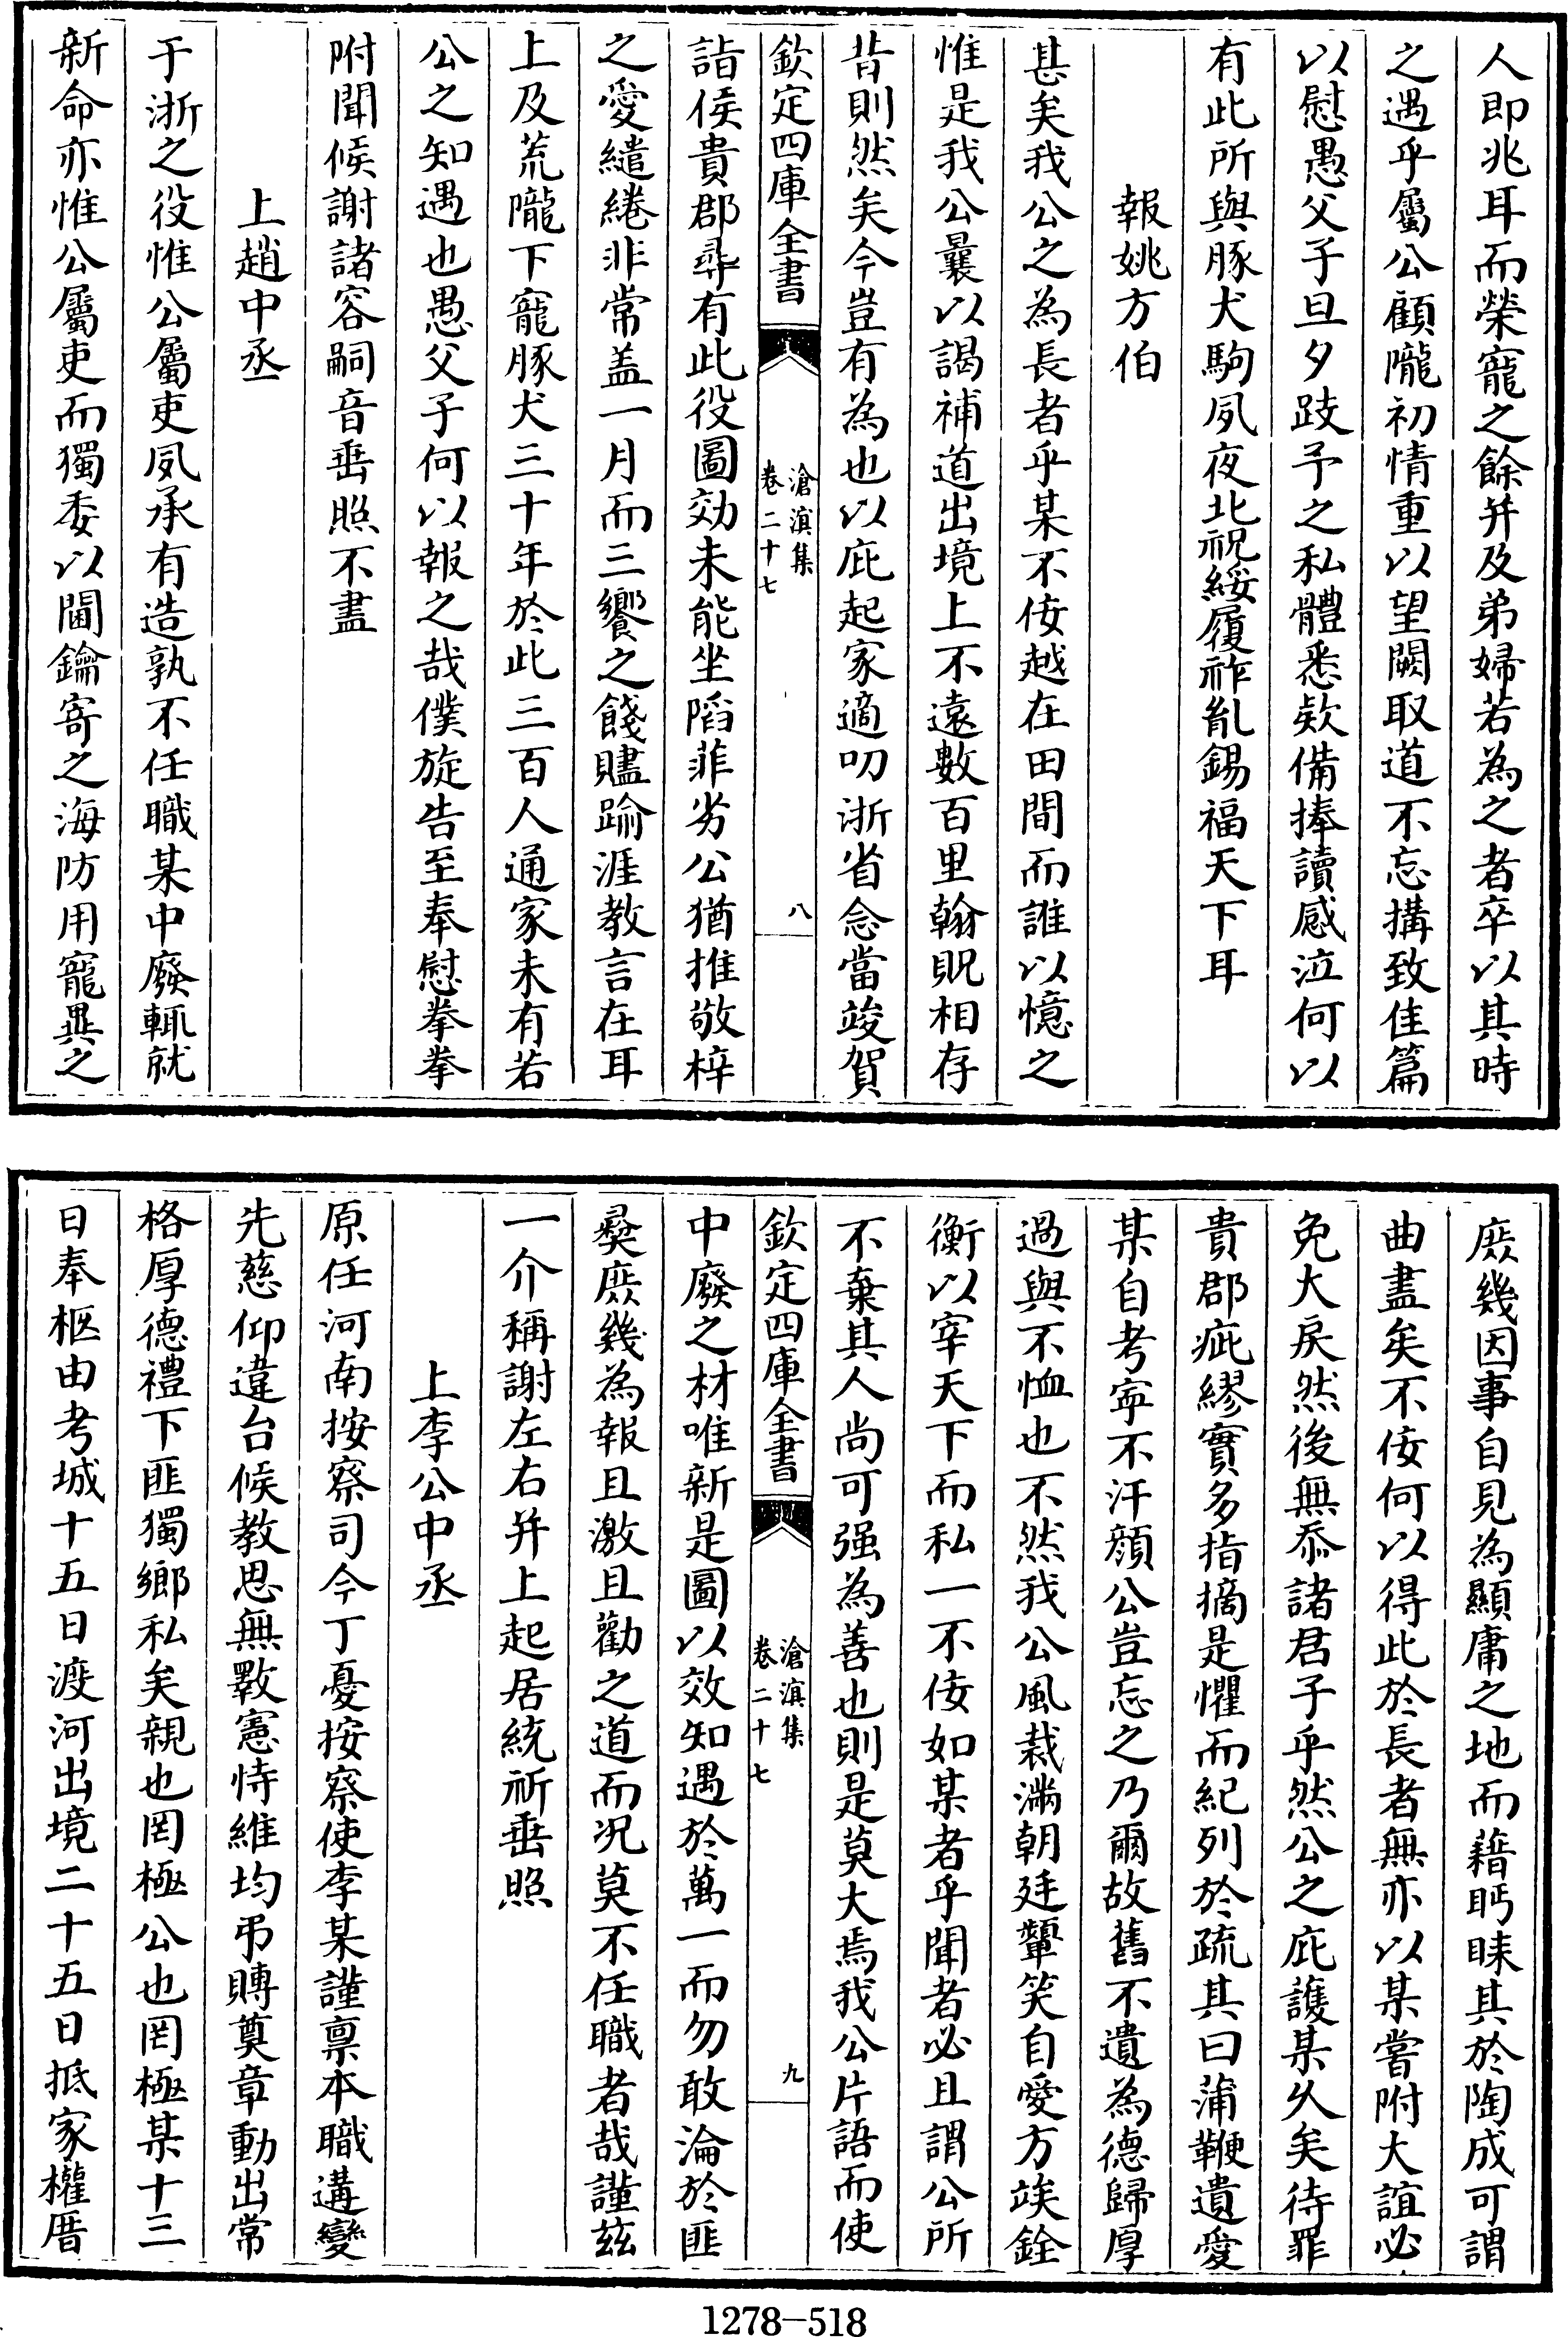 人即兆耳而榮寵之餘并及弟婦若為之者卒以其時
之遇乎屬公顧隴初情重以望闕取道不忘搆致佳篇
以慰愚父子旦夕跂予之私體悉欵備捧讀感泣何以
有此所與豚犬駒夙夜北祝綏履祚胤錫福天下耳
報姚方伯
甚矣我公之為長者乎某不佞越在田間而誰以憶之
惟是我公曩以謁補道出境上不遠數百里翰貺相存
昔則然矣今豈有為也以庇起家適叨浙省念當竣賀
欽定四庫全書
滄溟集
卷二十七
八
詣侯貴郡尋有此役圖効未能坐陷菲劣公猶推敬梓
之愛繾綣非常盖一月而三饗之餞贐踰涯教言在耳
上及荒隴下寵豚犬三十年於此三百人通家未有若
公之知遇也愚父子何以報之哉僕旋告至奉慰拳拳
附聞候謝諸容嗣音垂照不盡
上趙中丞
于浙之役惟公屬吏夙承有造孰不任職某中廢輒就
新命亦惟公屬吏而獨委以閫鑰寄之海防用寵異之
庶幾因事自見為顯庸之地而藉眄睐其於陶成可謂
曲盡矣不佞何以得此於長者無亦以某嘗附大誼必
免大戾然後無忝諸君子乎然公之庇護某久矣待罪
貴郡疵繆實多指摘是懼而紀列於疏其曰蒲鞭遺愛
某自考寧不汗顔公豈忘之乃爾故舊不遺為德歸厚
過與不恤也不然我公風裁滿朝廷顰笑自愛方竢銓
衡以宰天下而私一不佞如某者乎聞者必且謂公所
不棄其人尚可强為善也則是莫大焉我公片語而使
欽定四庫全書
滄溟集
卷二十七
九
中廢之材唯新是圖以效知遇於萬一而勿敢淪於匪
彝庶幾為報且激且勸之道而况莫不任職者哉謹玆
一介稱謝左右并上起居統祈垂照
上李公中丞
原任河南按察司今丁憂按察使李某謹禀本職遘變
先慈仰違台候教思無斁憲恃維均弔賻奠章動出常
格厚德禮下匪獨鄉私矣親也罔極公也罔極某十三
日奉柩由考城十五日渡河出境二十五日抵家權厝
1278-518